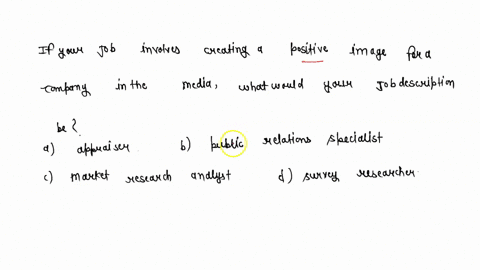 If your job involves creating a positive image for a
company in the media, what would your job description
be?
a) appraiser b) public relations specialist
c) market research analyst d) survey researcher